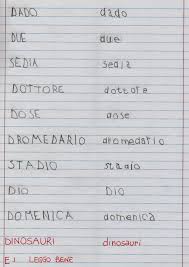 DADO dado
DUE due
SEDIA sedia
DOTTORE dottore
DOSE dose
DROMEDARIO dromedario
STADIO stadio
DIO DIO
DOMENICA domenica
DINOSAURI dinosauri
E I LEGGO BENE